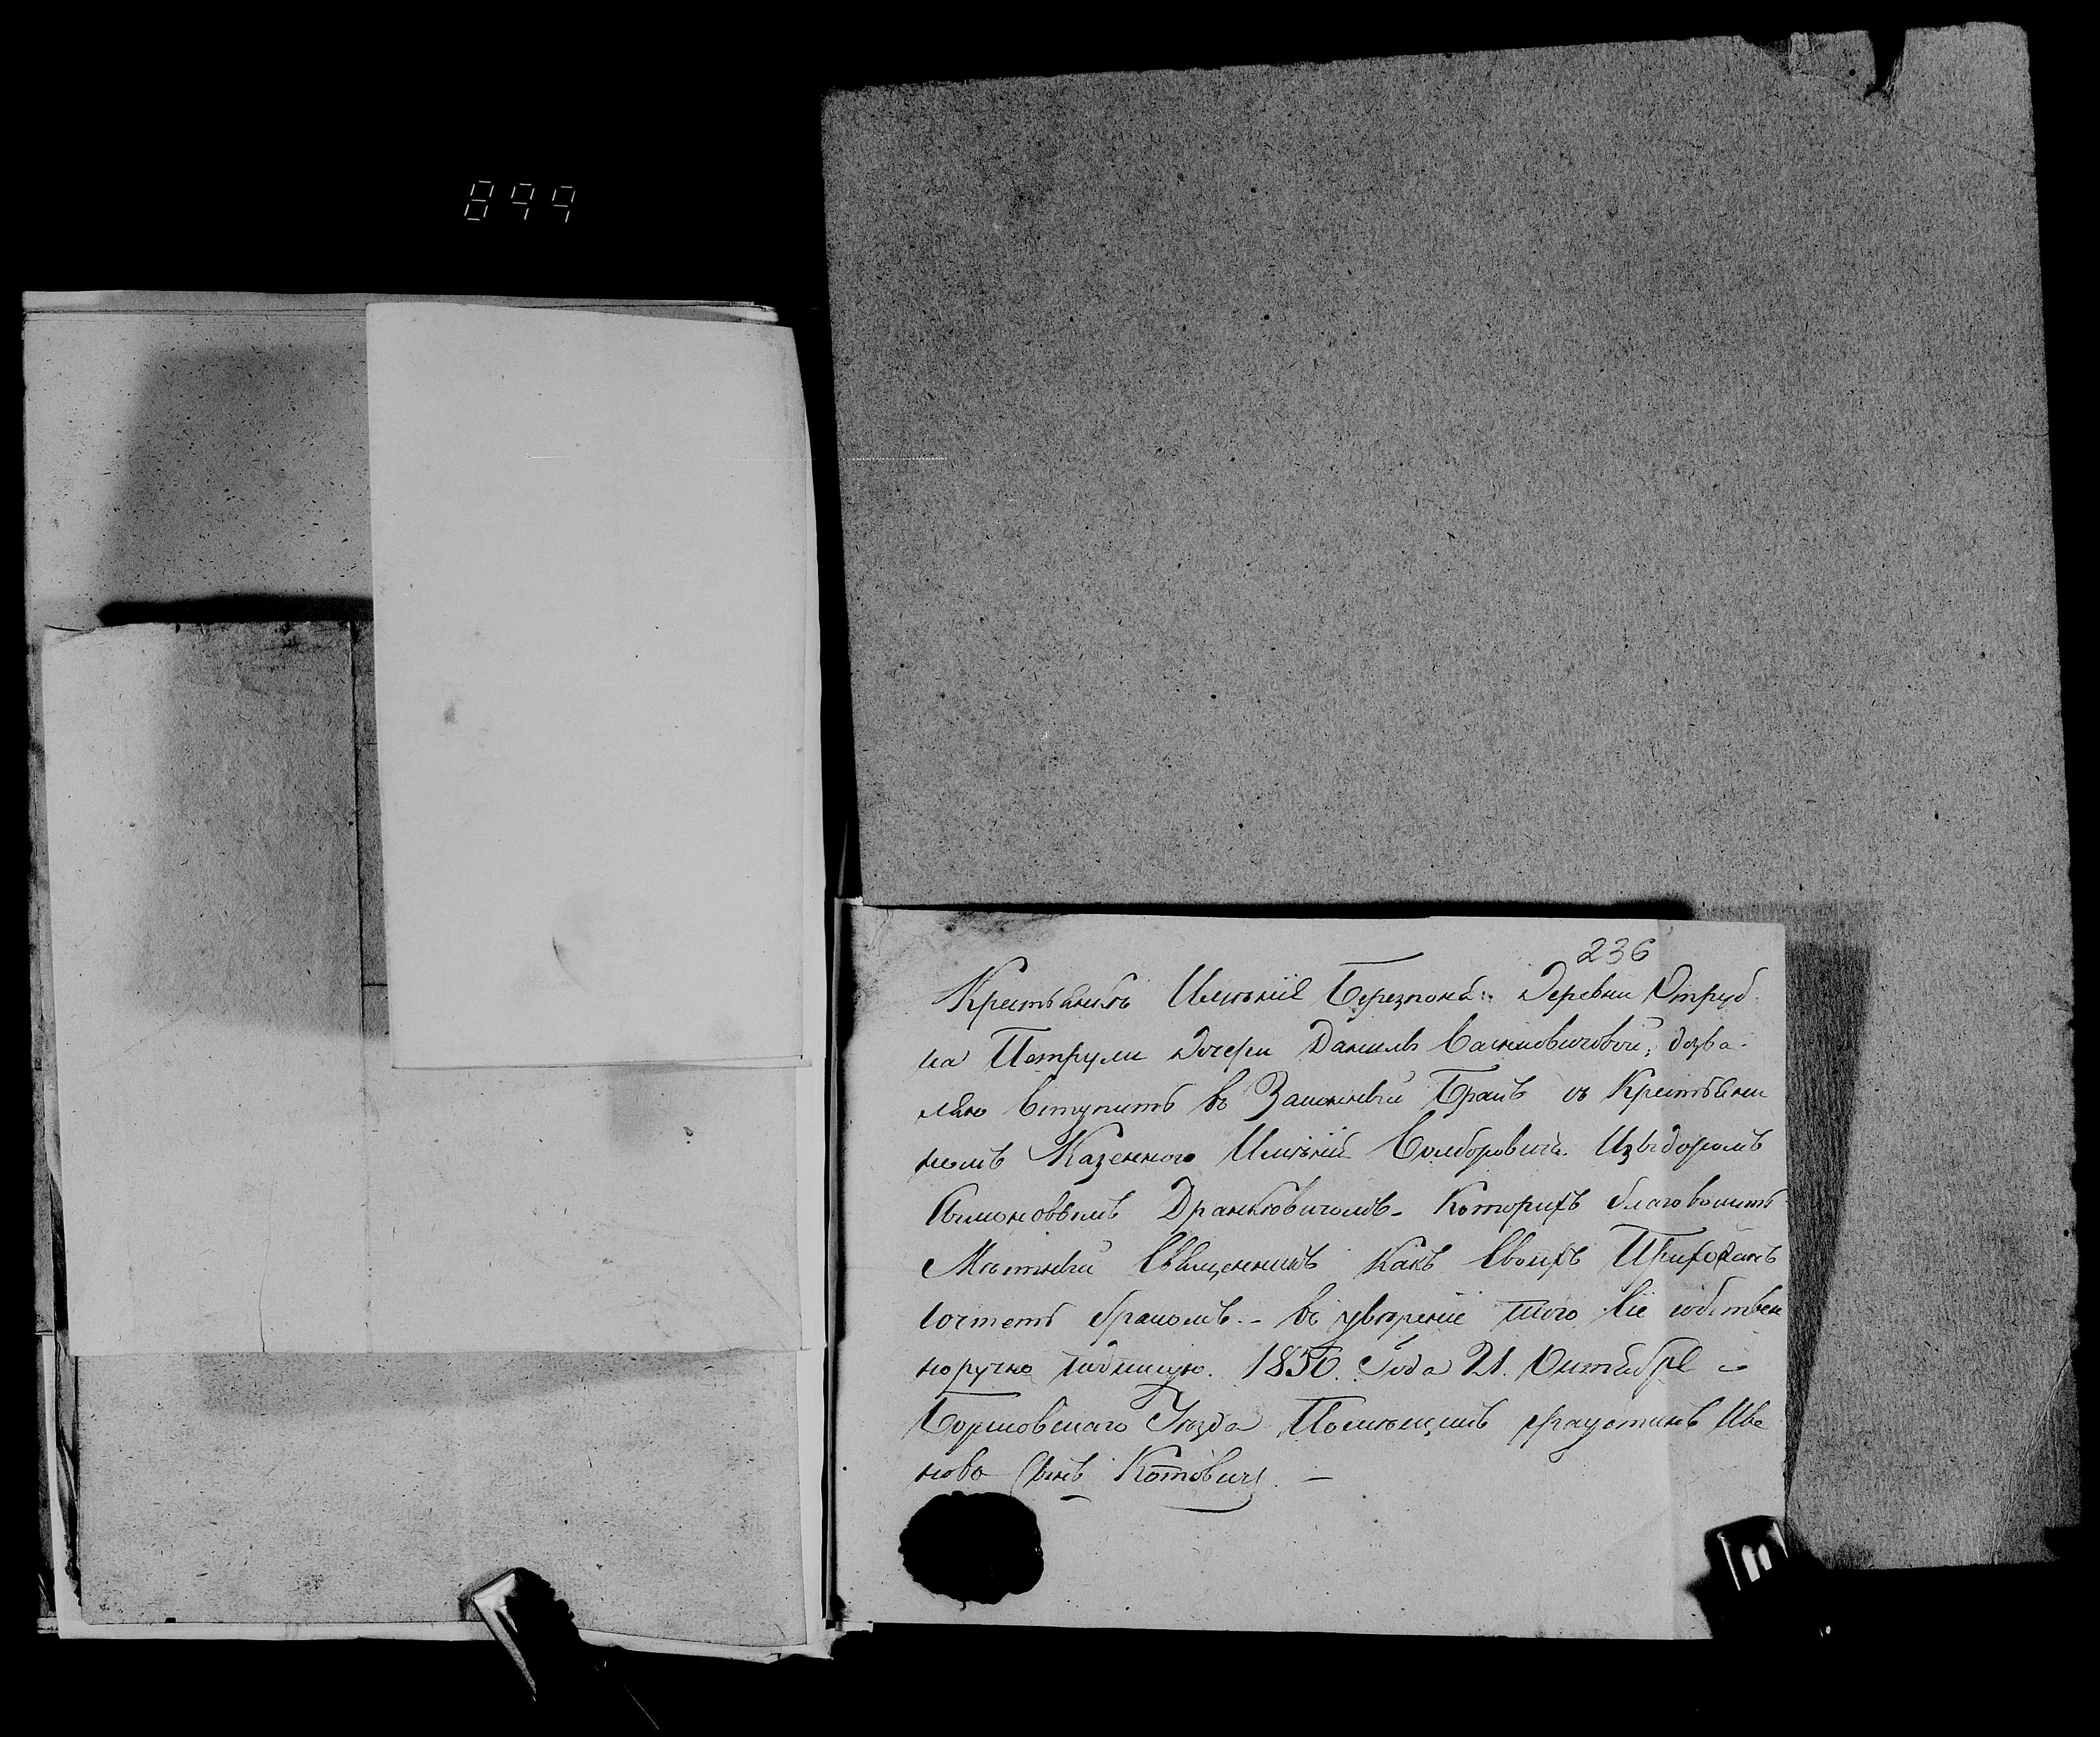 899
236
Крестьянкѣ Имѣнія Березпонья: Деревни Отруб
на Петрули дочери Даниль Васильовичовой; дозва-
ляю вступить въ Законный Бракъ съ Крестьяни
номъ Казенного Имѣнія Изыдоромъ
Симоновымъ Дранковичомъ. Которихъ благоволитъ
Мѣстный Священникъ Какъ Своихъ Прихожанъ
сочтетъ бракомъ. - въ увѣреніе чего сіе собствен
норучно подпишую. 1850. Года 21. Октября
Борисовскаго Уѣзда Помѣщикъ Фаустинъ Ива
новъ Сынъ Котович. -